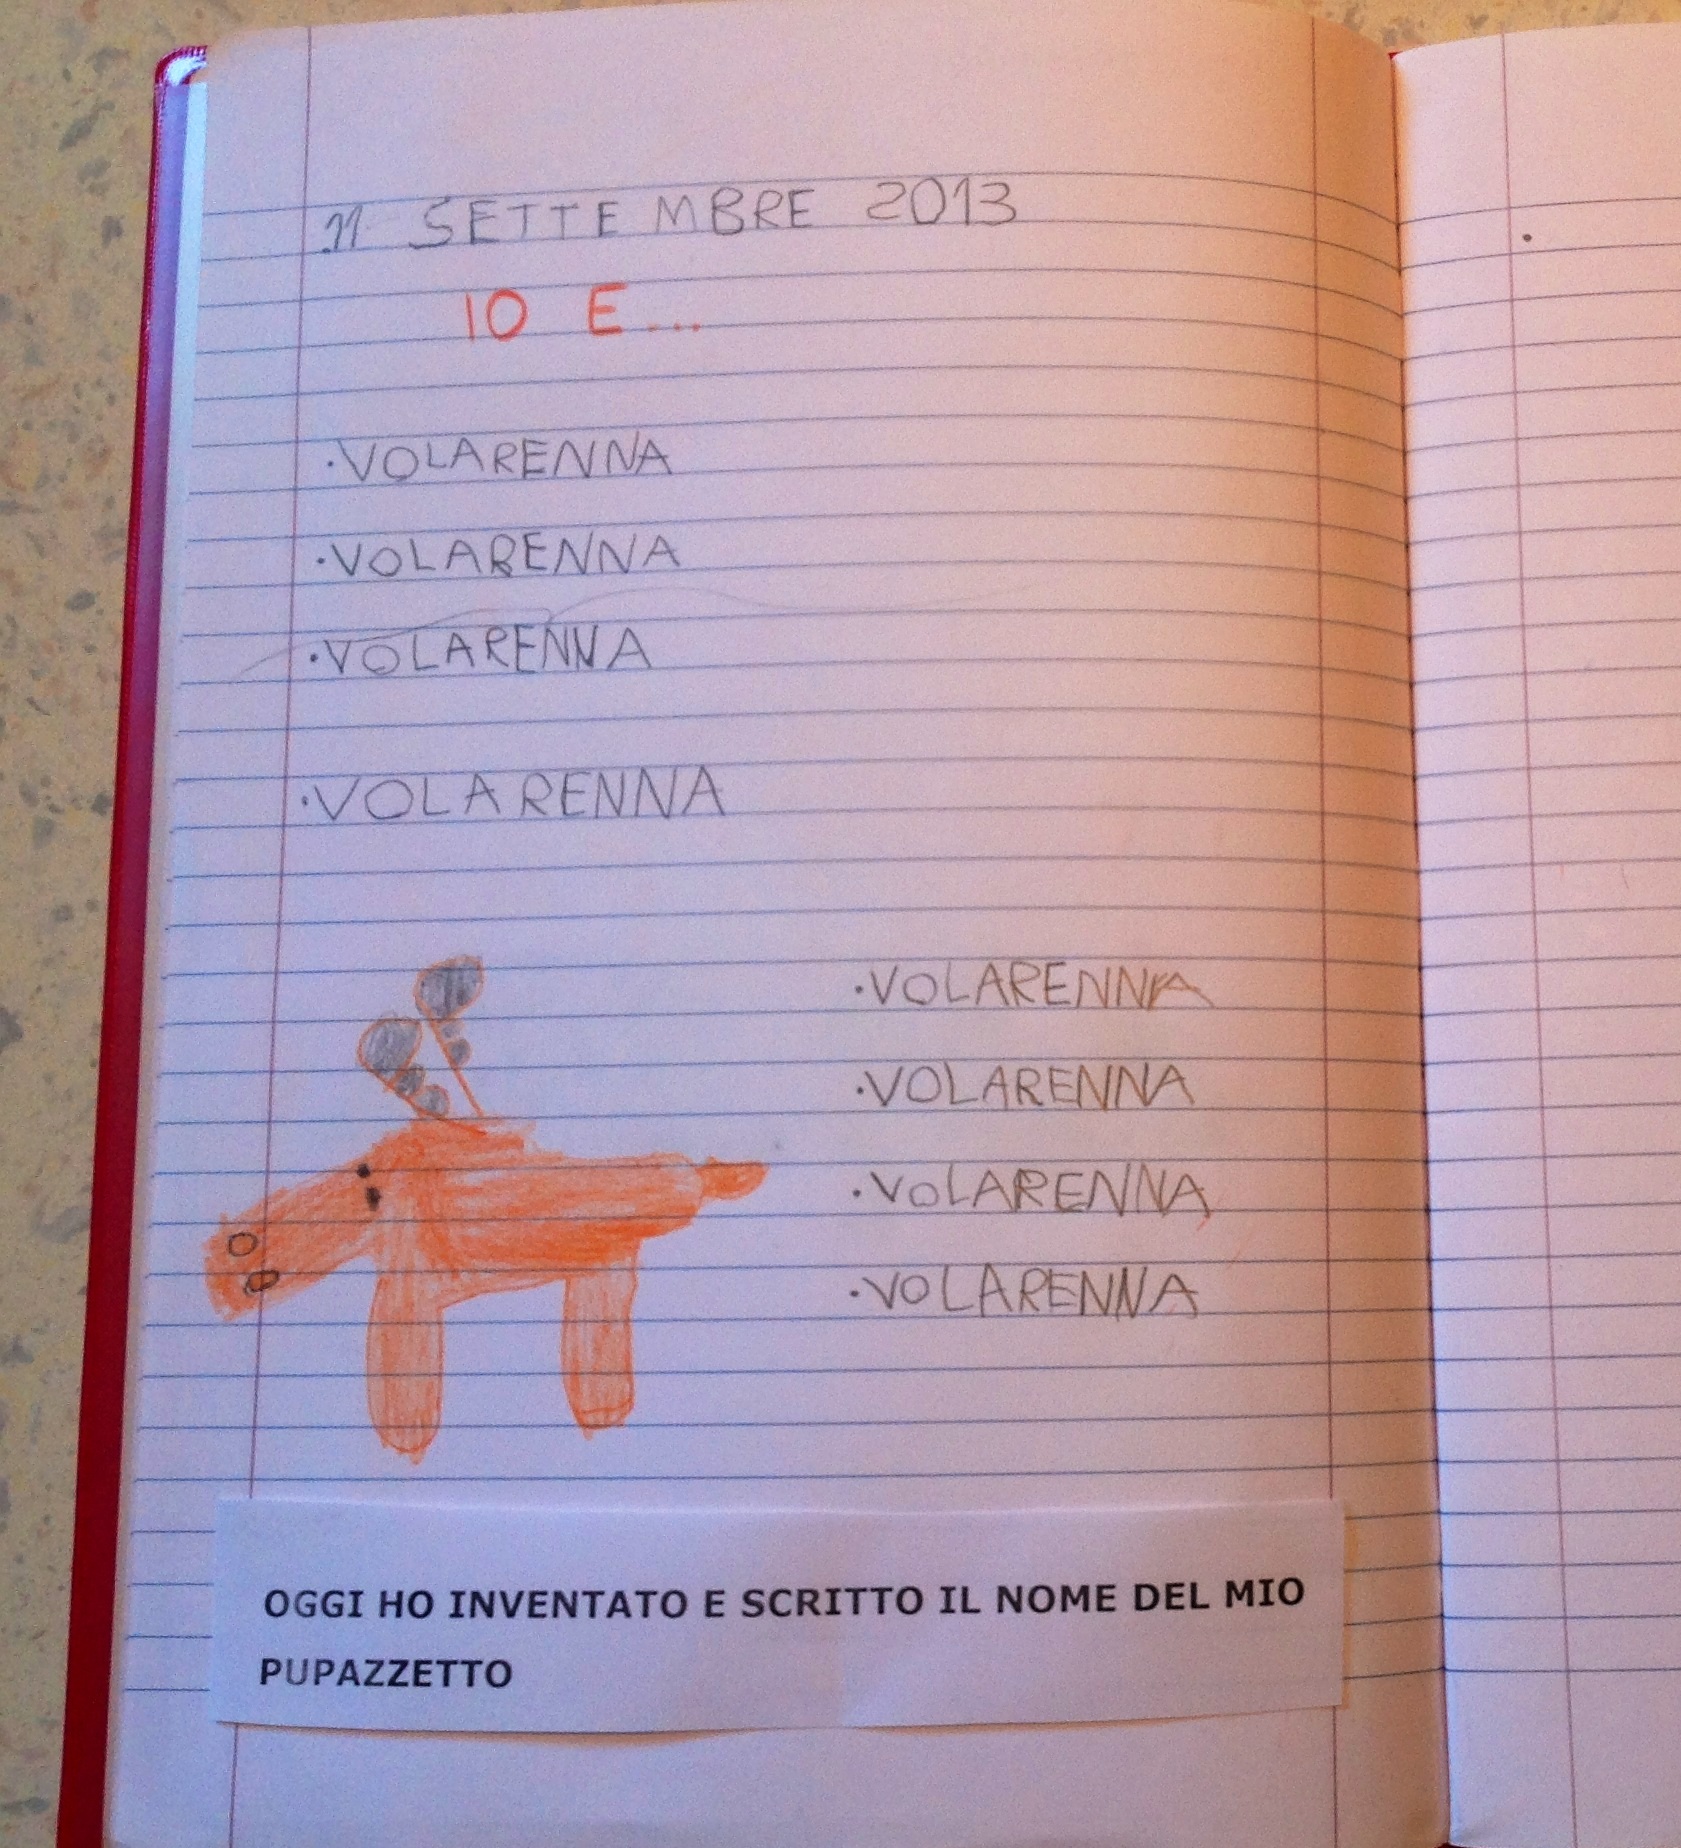 11 SETTEMBRE 2013
IO E...
·VOLARENNA
·VOLARENNA
·VOLARENNA
·VOLARENNA
·VOLARENNA
·VOLARENNA
·VOLARENNA
·VOLARENNA
OGGI HO INVENTATO E SCRITTO IL NOME DEL MIO
PUPAZZETTO